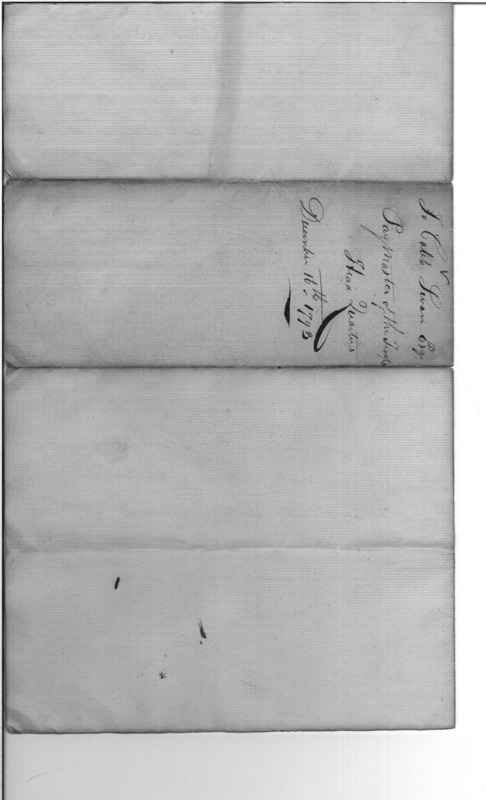 To Caleb Swan Esqr
Pay Master of the Troops
Head Quarters
December 16th 1792